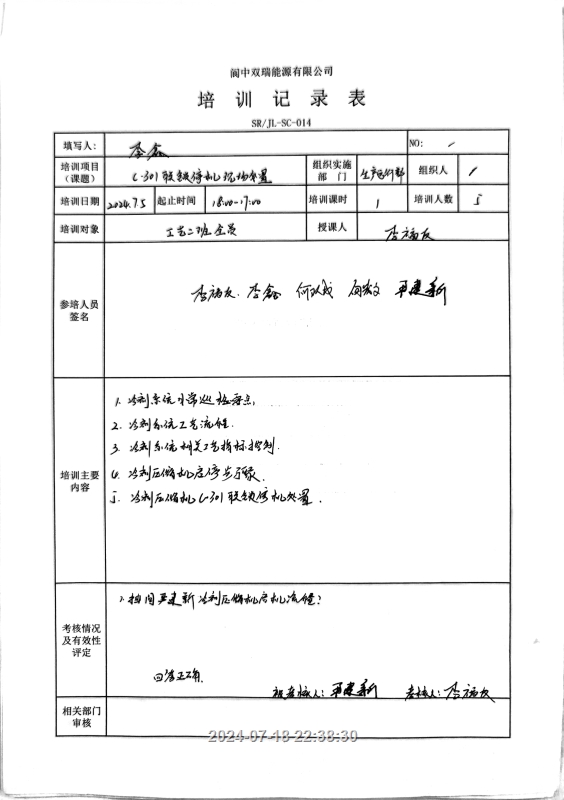 阆中双瑞能源有限公司
培训记录表
SR/JL-SC-014
填写人: 李鑫 NO: /
培训项目(课题) C-301联锁停机现场处置 组织实施部门 生产运行部 组织人 /
培训日期 2024.7.5 起止时间 16:00-17:00 培训课时 1 培训人数 5
培训对象 工艺二班全员 授课人 李福友
参培人员签名 李福友. 李鑫 何以成 严建新
培训主要内容
1. 冷剂系统日常巡检要点,
2. 冷剂系统工艺流程.
3. 冷剂系统相关工艺指标控制.
4. 冷剂压缩机启停步骤.
5. 冷剂压缩机C-301联锁停机处置.
考核情况及有效性评定
1. 抽问严建新冷剂压缩机启机流程?
回答正确.
被考核人: 严建新 考核人: 李福友
相关部门审核
2024-07-18 22:38:30